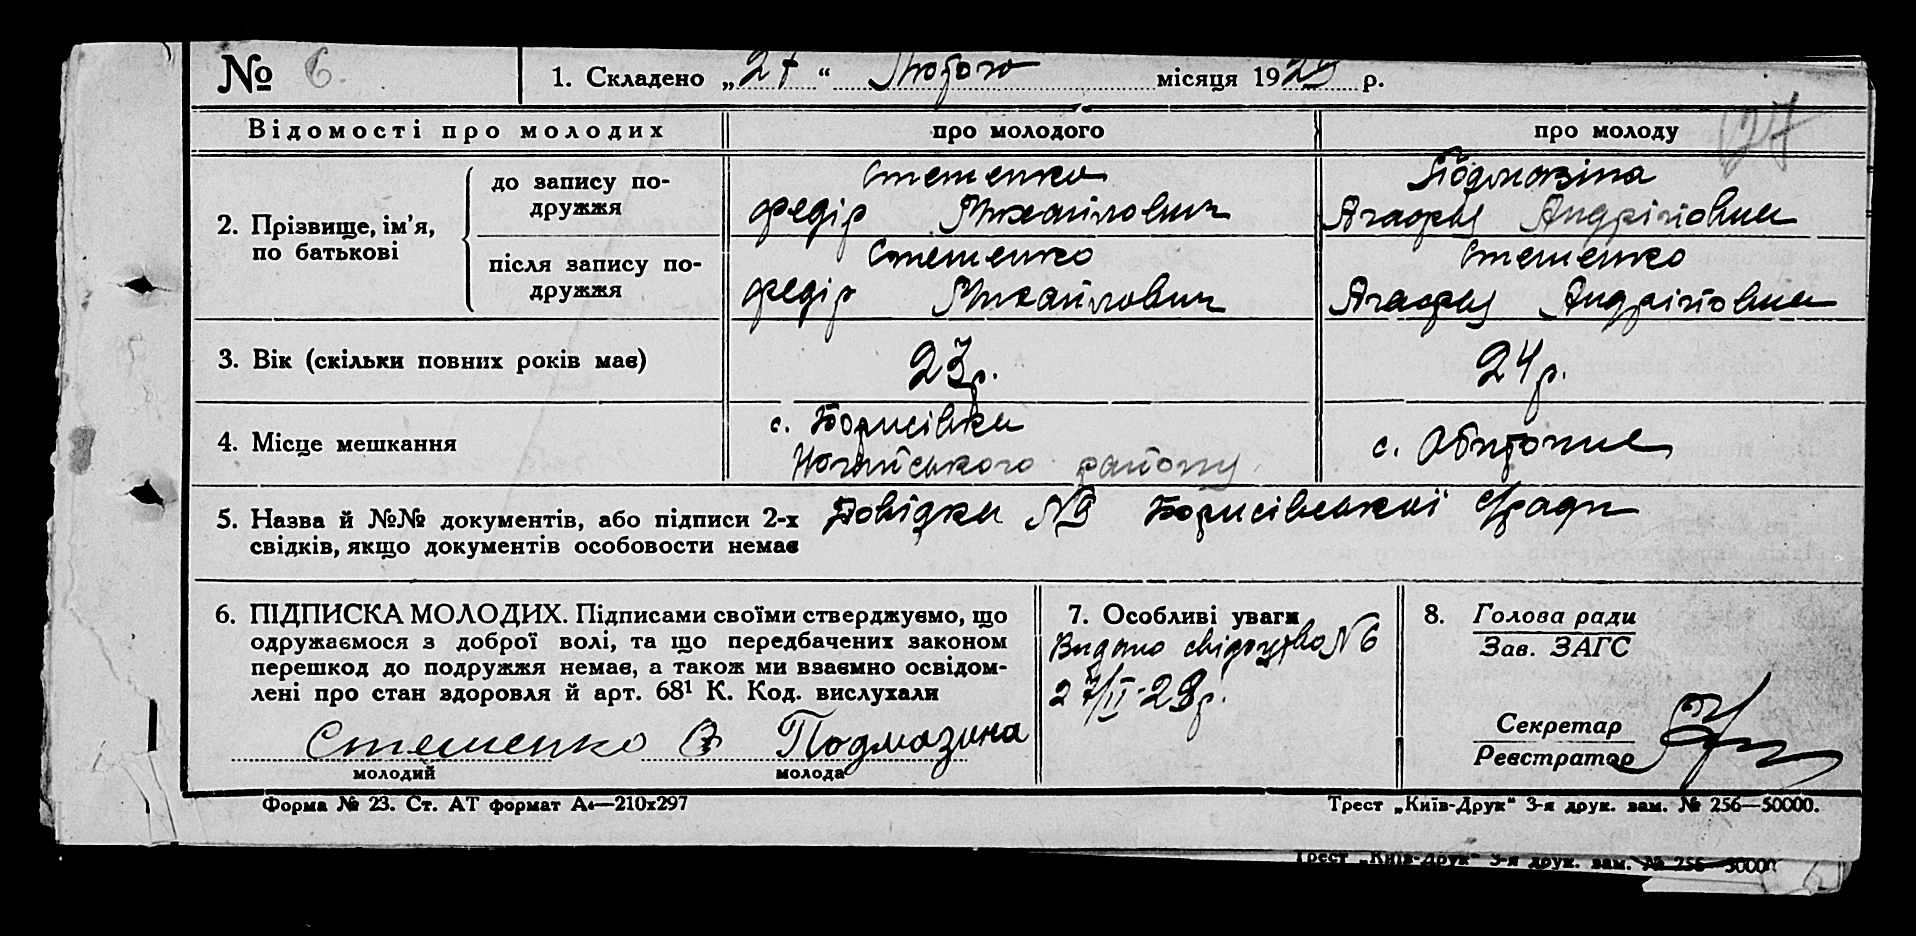 № 6. 1. Складено „27“ Лютого місяця 1929 р.
Відомості про молодих про молодого про молоду 27
2. Прізвище, ім'я, по батькові
до запису подружжя
Стешенко
Федір Михайлович
Подмазіна
Агафья Андріївна
після запису подружжя
Стешенко
Федір Михайлович
Стешенко
Агафья Андріївна
3. Вік (скільки повних років має) 23 р. 24 р.
4. Місце мешкання
с. Борисівка
Ногайського району
с. Обиточне
5. Назва й №№ документів, або підписи 2-х
свідків, якщо документів особовости немає
Довідка №9 Борисівської с/ради
6. ПІДПИСКА МОЛОДИХ. Підписами своїми стверджуємо, що
одружаємося з доброї волі, та що передбачених законом
перешкод до подружжя немає, а також ми взаємно освідом-
лені про стан здоровля й арт. 68¹ К. Код. вислухали
Стешенко Подмазина
молодий молода
7. Особливі уваги
Видано свідоцтво №6
27/II-29р.
8. Голова ради
Зав. ЗАГС
Секретар
Реєстратор
Форма № 23. Ст. АТ формат А₄—210х297
Трест „Київ-Друк“ 3-я друк. зам. № 256—50000.
Трест „Київ-Друк“ 3-я друк. зам. № 256—50000